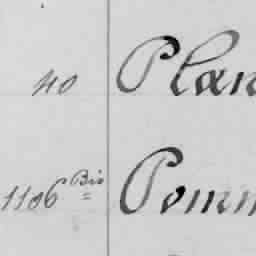 40 Plan
1106 Bis Pomm